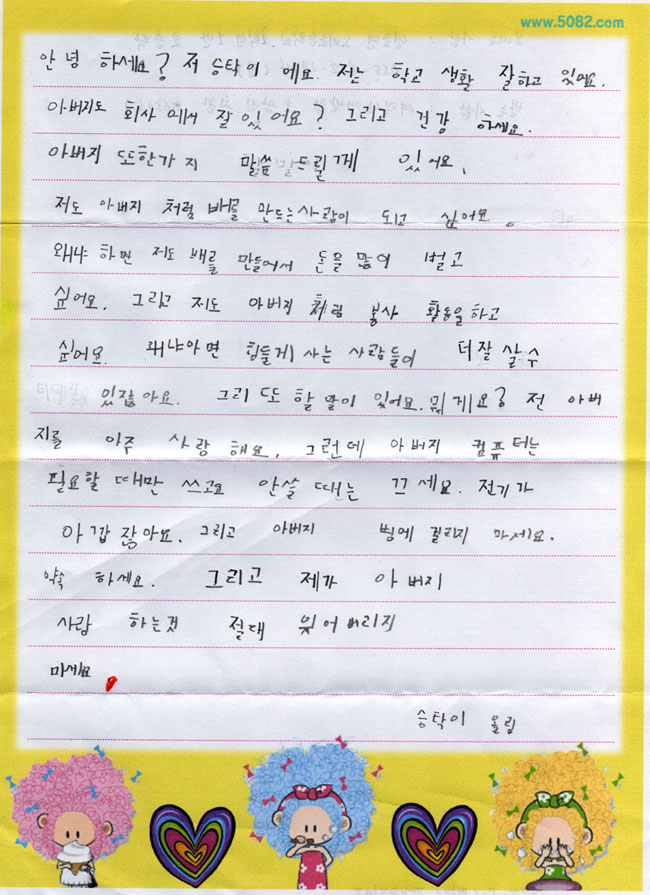 www.5082.com
안녕 하세요? 저 승탁이 에요. 저는 학교 생활 잘하고 있어요.
아버지도 회사에서 잘 있어요? 그리고 건강 하세요.
아버지 또한가지 말씀드릴게 있어요.
저도 아버지 처럼 배를 만드는사람이 되고 싶어요.
왜냐 하면 저도 배를 만들어서 돈을 많이 벌고
싶어요. 그리고 저도 아버지 처럼 봉사 활동을하고
싶어요. 왜냐아면 힘들게 사는 사람들이 더잘 살수
있잖아요. 그리 또 할 말이 있어요. 뭐 게요? 전 아버
지를 아주 사랑 해요. 그런데 아버지 컴퓨터는
필요할 때만 쓰고요 안쓸 때는 끄세요. 전기가
아깝잖아요. 그리고 아버지 병에 걸리지 마세요.
약속 하세요. 그리고 제가 아버지
사랑 하는것 절대 잊어버리지
마세요
승탁이 올림